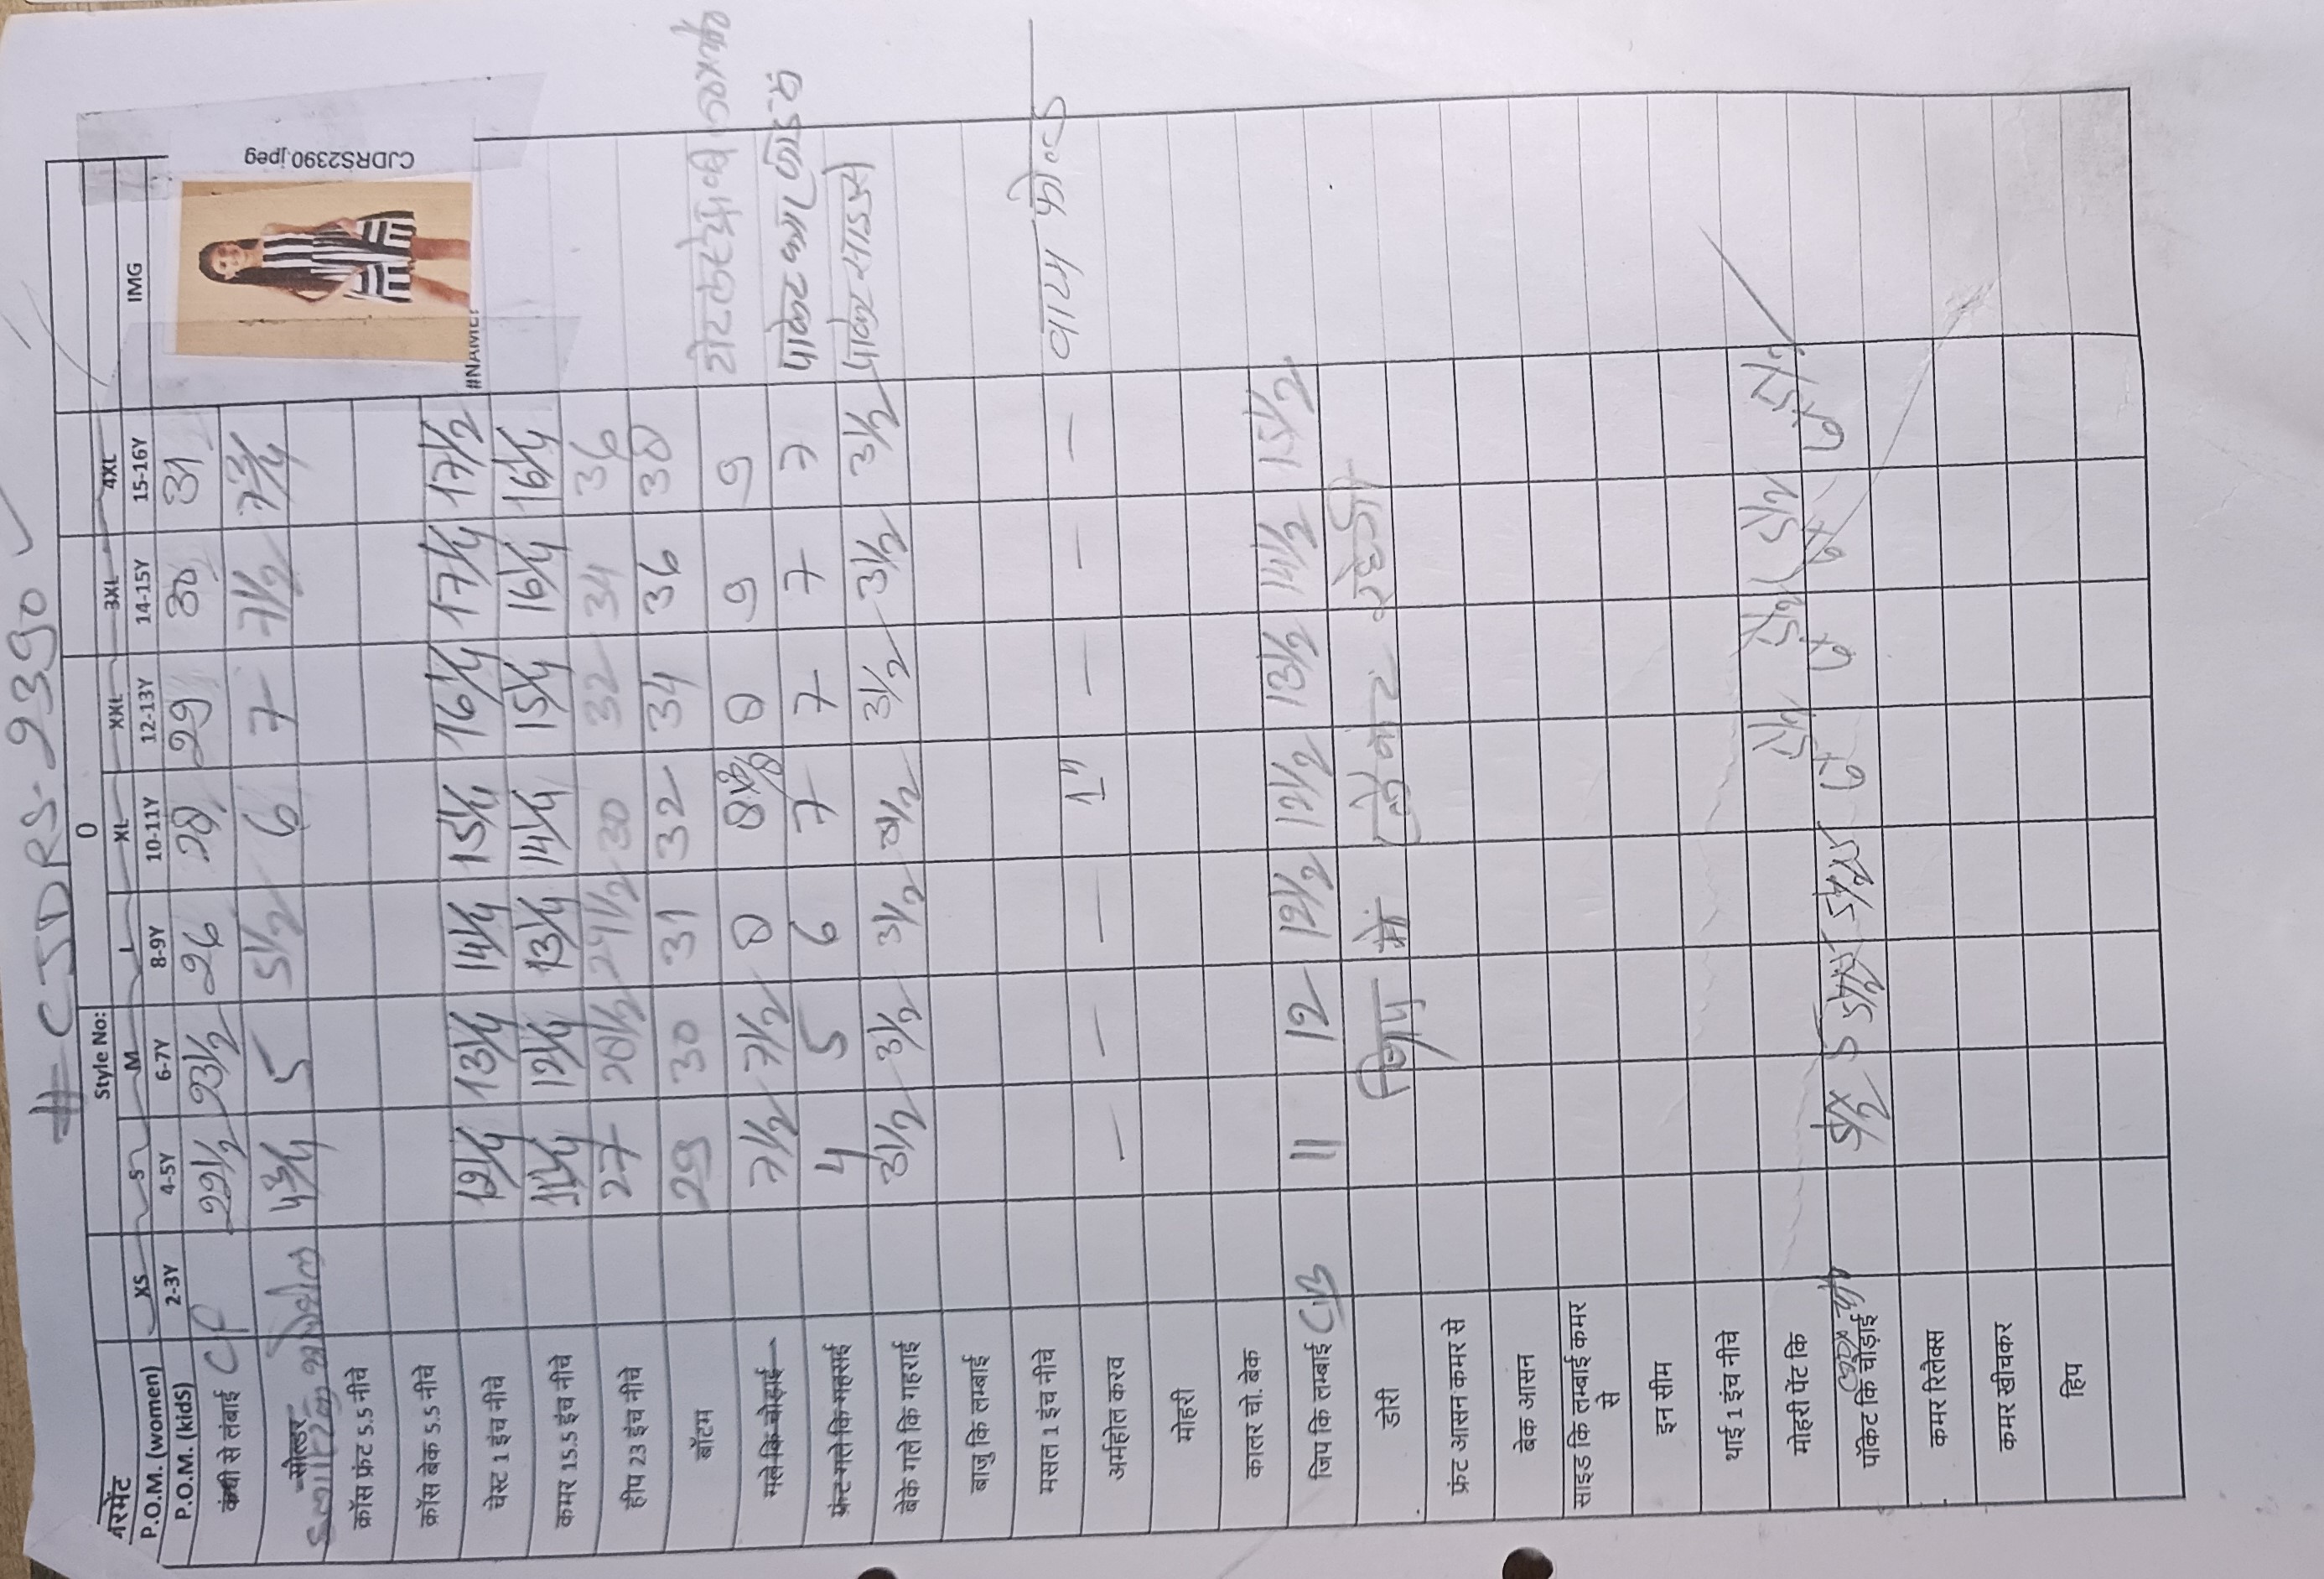 # CJDRS-2390
Style No: 0
गरमेंट
P.O.M. (women) XS S M L XL XXL 3XL 4XL IMG
P.O.M. (kidS) 2-3Y 4-5Y 6-7Y 8-9Y 10-11Y 12-13Y 14-15Y 15-16Y
CJDRS2390.jpeg
कंधी से लंबाई 22 1/2 23 1/2 26 28 29 30 31
सोल्डर 4 3/4 5 5 1/2 6 7 7 1/2 7 3/4
क्रॉस फ्रंट 5.5 नीचे
क्रॉस बेक 5.5 नीचे
#NAME?
चेस्ट 1 इंच नीचे 12 1/4 13 1/4 14 1/4 15 1/4 16 1/4 17 1/4 17 1/2
कमर 15.5 इंच नीचे 11 1/4 12 1/4 13 1/4 14 1/4 15 1/4 16 1/4 16 1/4
हीप 23 इंच नीचे 27 28 1/2 29 1/2 30 32 34 36
बॉटम 29 30 31 32 34 36 38
गले कि चोड़ाई 7 1/2 7 1/2 8 8 8 9 9
फ्रंट गले कि गहराई 4 5 6 7 7 7 7 पाकेट का
बेके गले कि गहराई 3 1/2 3 1/2 3 1/2 3 1/2 3 1/2 3 1/2 पाकेट साइज
बाजु कि लम्बाई
मसल 1 इंच नीचे
अर्महोल करव — — — 1" — — — बायस फोल्ड
मोहरी
कालर चो. बेक
जिप कि लम्बाई CB 11 12 12 1/2 12 1/2 13 1/2 14 1/2 15 1/2
डोरी
फ्रंट आसन कमर से
बेक आसन
साइड कि लम्बाई कमर
से
इन सीम
थाई 1 इंच नीचे
मोहरी पेंट कि
पॉकेट कि चौड़ाई
कमर रिलेक्स
कमर खीचकर
हिप